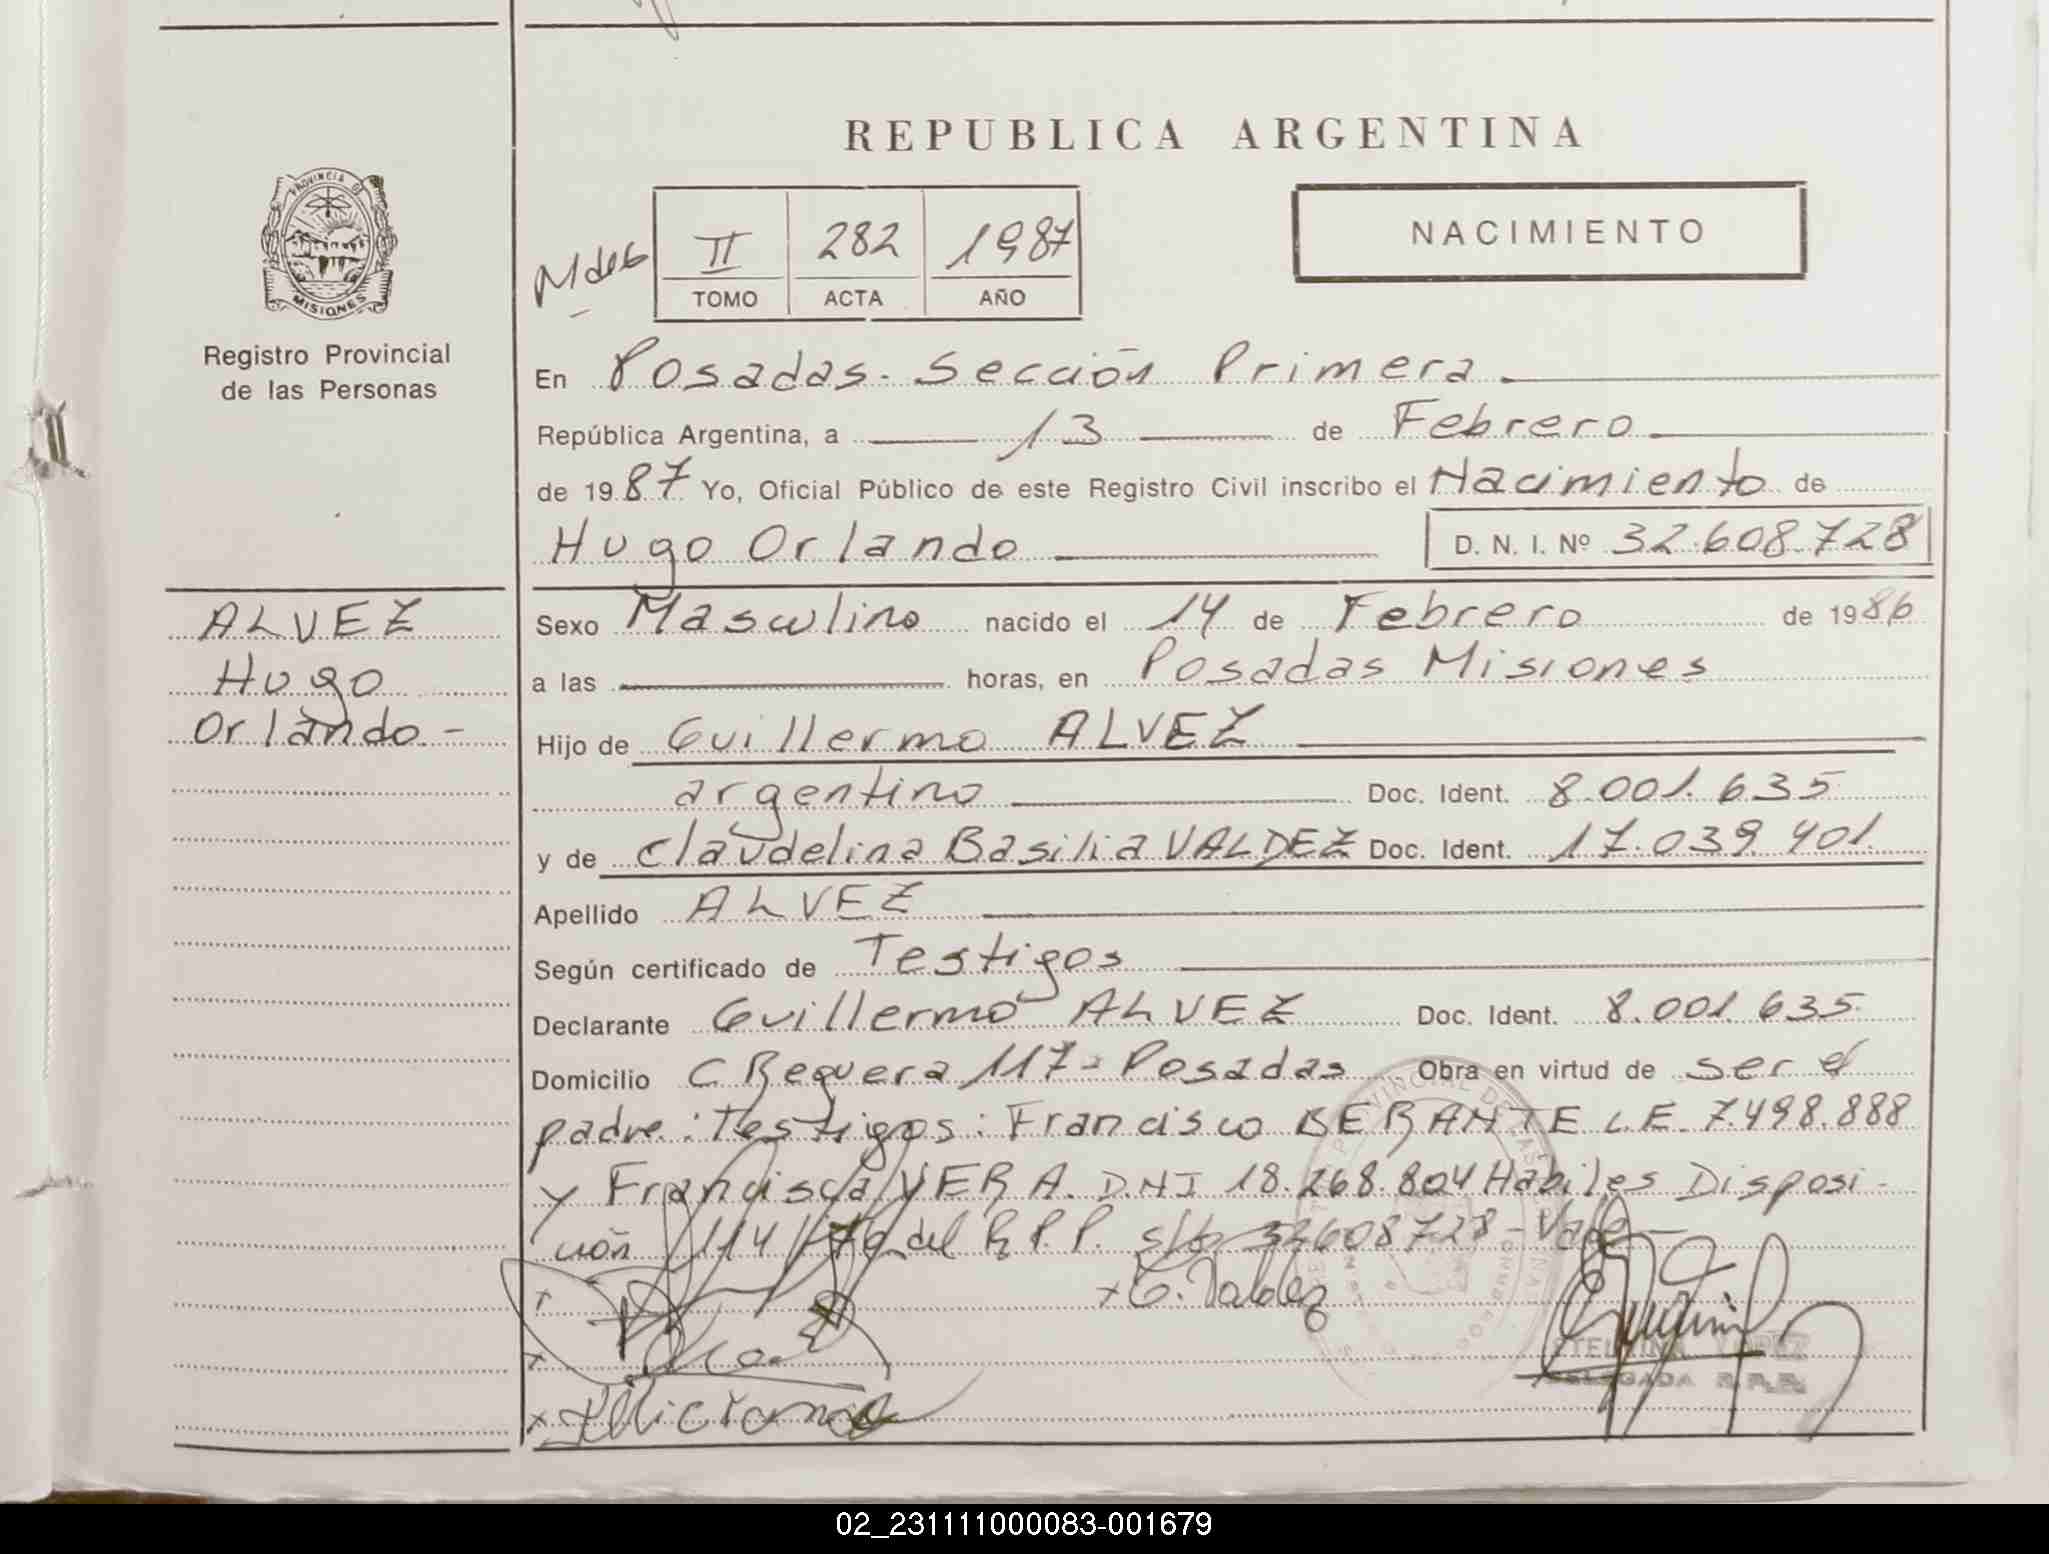 REPUBLICA ARGENTINA
PROVINCIA DE
MISIONES
Registro Provincial
de las Personas
II 282 1987
TOMO ACTA AÑO
NACIMIENTO
En Posadas. Sección Primera
República Argentina, a 13 de Febrero
de 1987 Yo, Oficial Público de este Registro Civil inscribo el Nacimiento de
Hugo Orlando D. N. I. Nº 32.608.728
ALVEZ
Hugo
Orlando-
Sexo Masculino nacido el 14 de Febrero de 1986
a las horas, en Posadas Misiones
Hijo de Guillermo ALVEZ
argentino Doc. Ident. 8.001.635
y de Claudelina Basilia VALDEZ Doc. Ident. 17.039.401.
Apellido ALVEZ
Según certificado de Testigos
Declarante Guillermo ALVEZ Doc. Ident. 8.001.635
Domicilio C Reguera 117- Posadas Obra en virtud de ser el
padre: Testigos: Francisco BERANTE L.E. 7.498.888
y Francisca VERA. D.N.I 18.268.804 Habiles Disposi-
ción 114/ del R.P.P. s/b 32608728-Vale-
DELEGADA R.P.P.
02_231111000083-001679